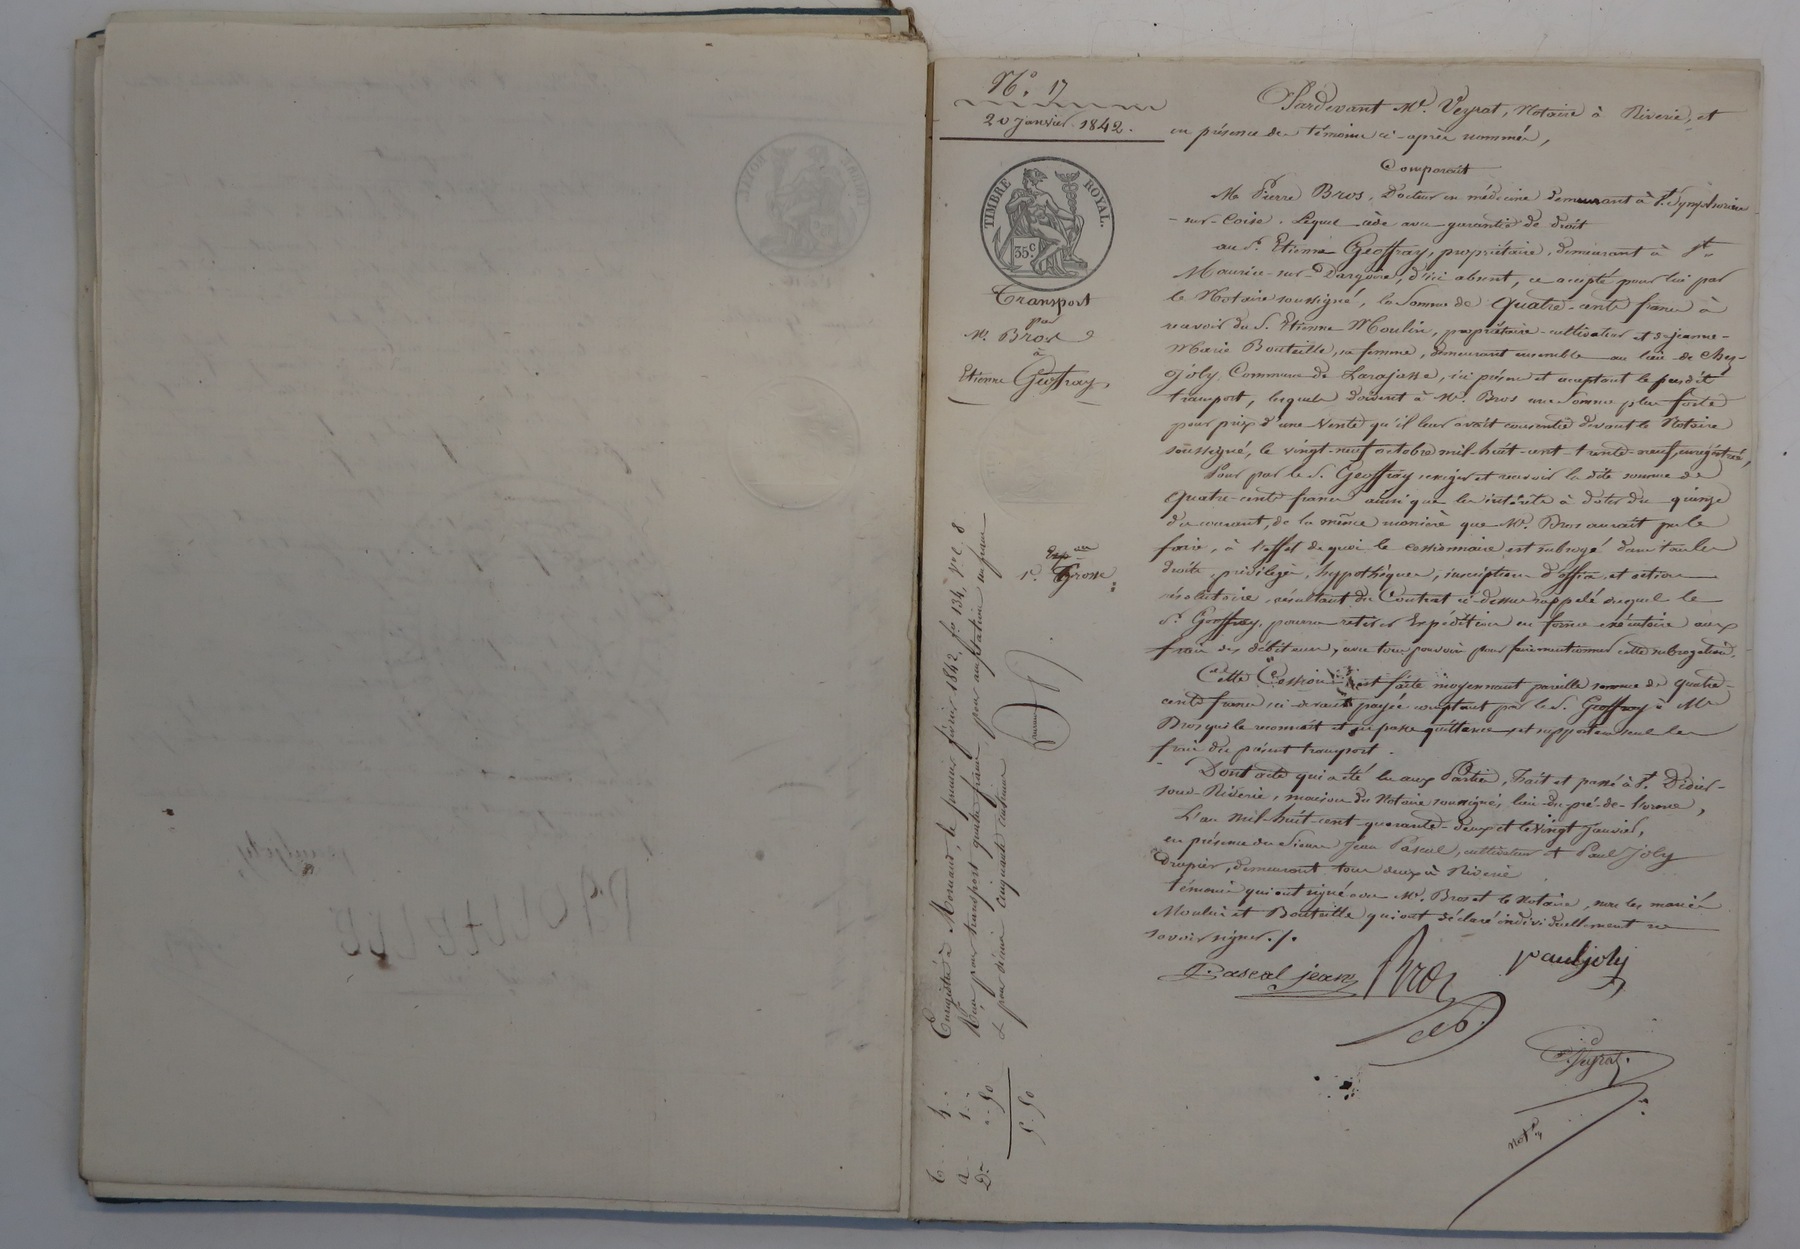 N.° 17
20 Janvier 1842.
TIMBRE ROYAL.
35.c
Transport
par
Mr. Bros
à
Etienne Geoffray,
1e. Grosse
Pardevant Me. Veyrat, Notaire à Riverie, et
en présence des témoins ci-après nommés,
Comparait
Mr Pierre Bros, Docteur en médecine demeurant à St. Symphorien
-sur-Coise. Lequel cède avec garantie de droit
au Sr. Etienne Geoffray, propriétaire, demeurant à St.
Maurice-sur-Dargoire, d'ici absent, ce accepté pour lui par
le Notaire soussigné, la somme de quatre-cents francs à
recevoir du S. Etienne Moulin, propriétaire-cultivateur et de jeanne-
Marie Bouteille, sa femme, demeurant ensemble au lieu de Chez-
joly, Commune de Larajasse, ici présens et acceptant le susdit
transport, lesquels doivent à Mr. Bros une somme plus forte
pour prix d'une vente qu'il leur avait consentie devant le Notaire
soussigné, le vingt-neuf octobre mil-huit-cent-trente-neuf, enrégistrée,
Pour par le S. Geoffray exiger et recevoir la dite somme de
quatre-cents francs ainsi que les intérêts à dater du quinze
du courant, de la même manière que Mr. Bros aurait pu le
faire, à l'effet de quoi le cessionnaire est subrogé dans tous les
droits, privilèges, hypothèques, inscription d'office, et action
résolutoire, résultant du Contrat ci-dessus rappelé duquel le
Sr. Geoffray pourra retirer Expédition en forme exécutoire aux
frais des débiteurs, avec tous pouvoirs pour faire mentionner cette subrogation.
Cette Cession est faite moyennant pareille somme de quatre-
cents francs ci-devant payée comptant par le S. Geoffray à Mr
Bros qui le reconnait et en passe quittance, et supportera seul les
frais du présent transport.
Dont acte qui a été lu aux Parties, Fait et passé à St. Didier-
sous-Riverie, maison du Notaire soussigné, lieu du pré-de-l'orme,
L'an mil-huit-cent-quarante-deux et le vingt Janvier,
en présence des Sieurs Jean Pascal, cultivateur et Paul Joly
Drapier, demeurant tous deux à Riverie
témoins qui ont signé avec Mr. Bros et le Notaire, non les mariés
Moulin et Bouteille qui ont déclaré individuellement ne
savoir signer./.
Pascal jean Bros paul joly
Veyrat.
not.re
Enregistré à Mornant, le premier février 1842, fo. 134, vo. c. 8
Reçu pour transport quatre francs, pour acceptation un franc
& pour décime cinquante centimes
4..
1..
Dme „.50
5.50